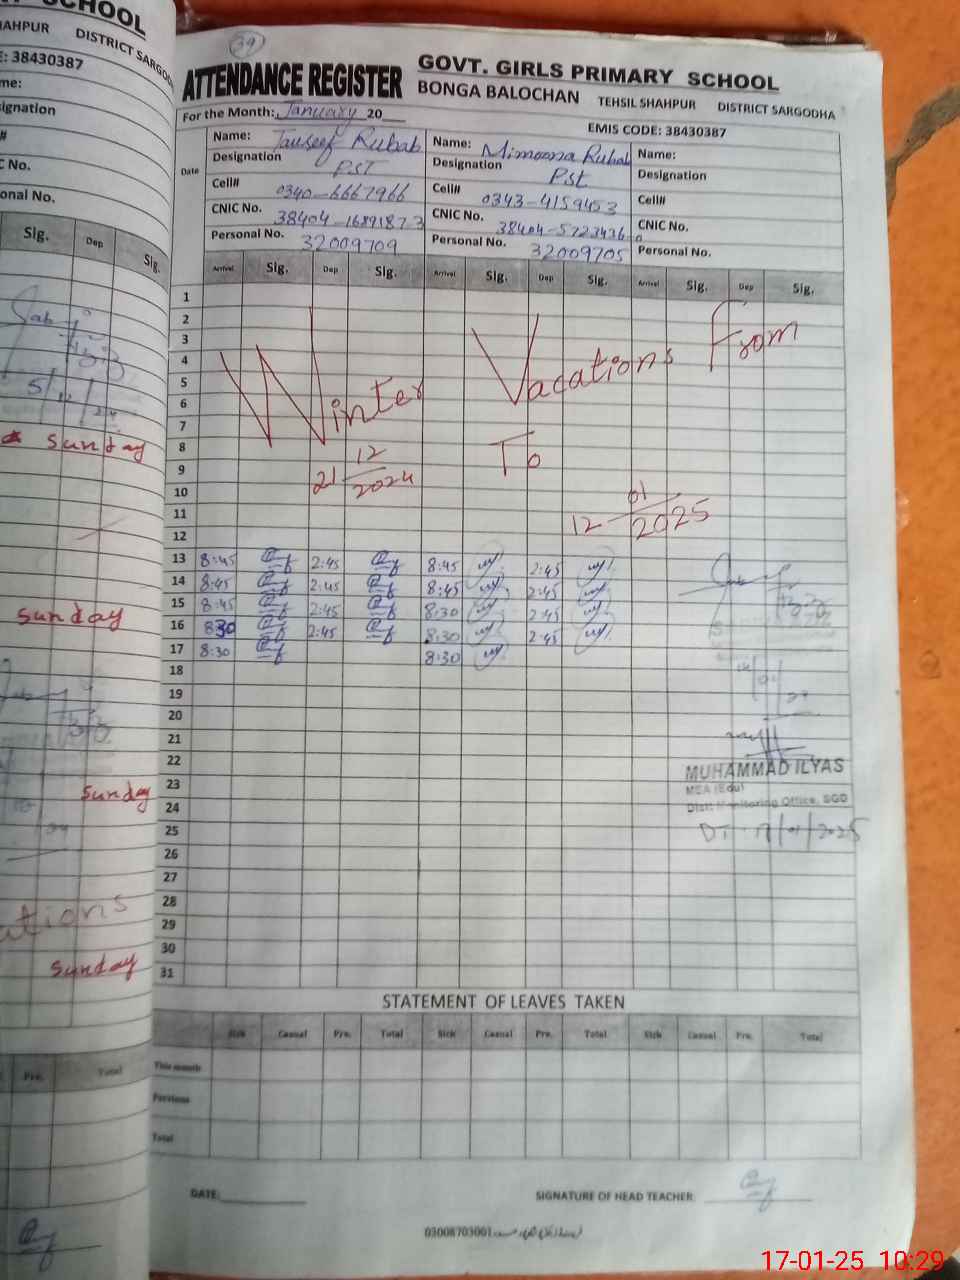 SCHOOL
SHAHPUR DISTRICT SARGODHA
38430387
Sig. Dep Sig.
5/12/24
Sunday
Sunday
Sunday
ations
Sunday
Pre. Total
39
ATTENDANCE REGISTER GOVT. GIRLS PRIMARY SCHOOL
BONGA BALOCHAN TEHSIL SHAHPUR DISTRICT SARGODHA
For the Month: January 20___ EMIS CODE: 38430387
Date
Name: Tauseef Rubab Name: Mimoona Rubab Name:
Designation PST Designation Pst Designation
Cell# 0340-6667966 Cell# 0343-4159453 Cell#
CNIC No. 38404-1689187-3 CNIC No. 38404-5723436- CNIC No.
Personal No. 32009709 Personal No. 32009705 Personal No.
Arrival Sig. Dep Sig. Arrival Sig. Dep Sig. Arrival Sig. Dep Sig.
1
2
3
4
5
6
7
8
9
10
11
12
Winter Vacations From
21 12/2024 To
12 01/2025
13 8:45 2:45 8:45 2:45
14 8:45 2:45 8:45 2:45
15 8:45 2:45 8:30 2:45
16 830 2:45 8:30 2:45
17 8:30 8:30
18
19
20
21
22
23
24
25
26
27
28
29
30
31
MUHAMMAD ILYAS
MEA (Edu)
Distt: Monitoring Office, SGD
DT: 17/01/2025
STATEMENT OF LEAVES TAKEN
Sick Casual Pre. Total Sick Casual Pre. Total Sick Casual Pre. Total
This month
Previous
Total
DATE:____________ SIGNATURE OF HEAD TEACHER
03008703001
17-01-25 10:29